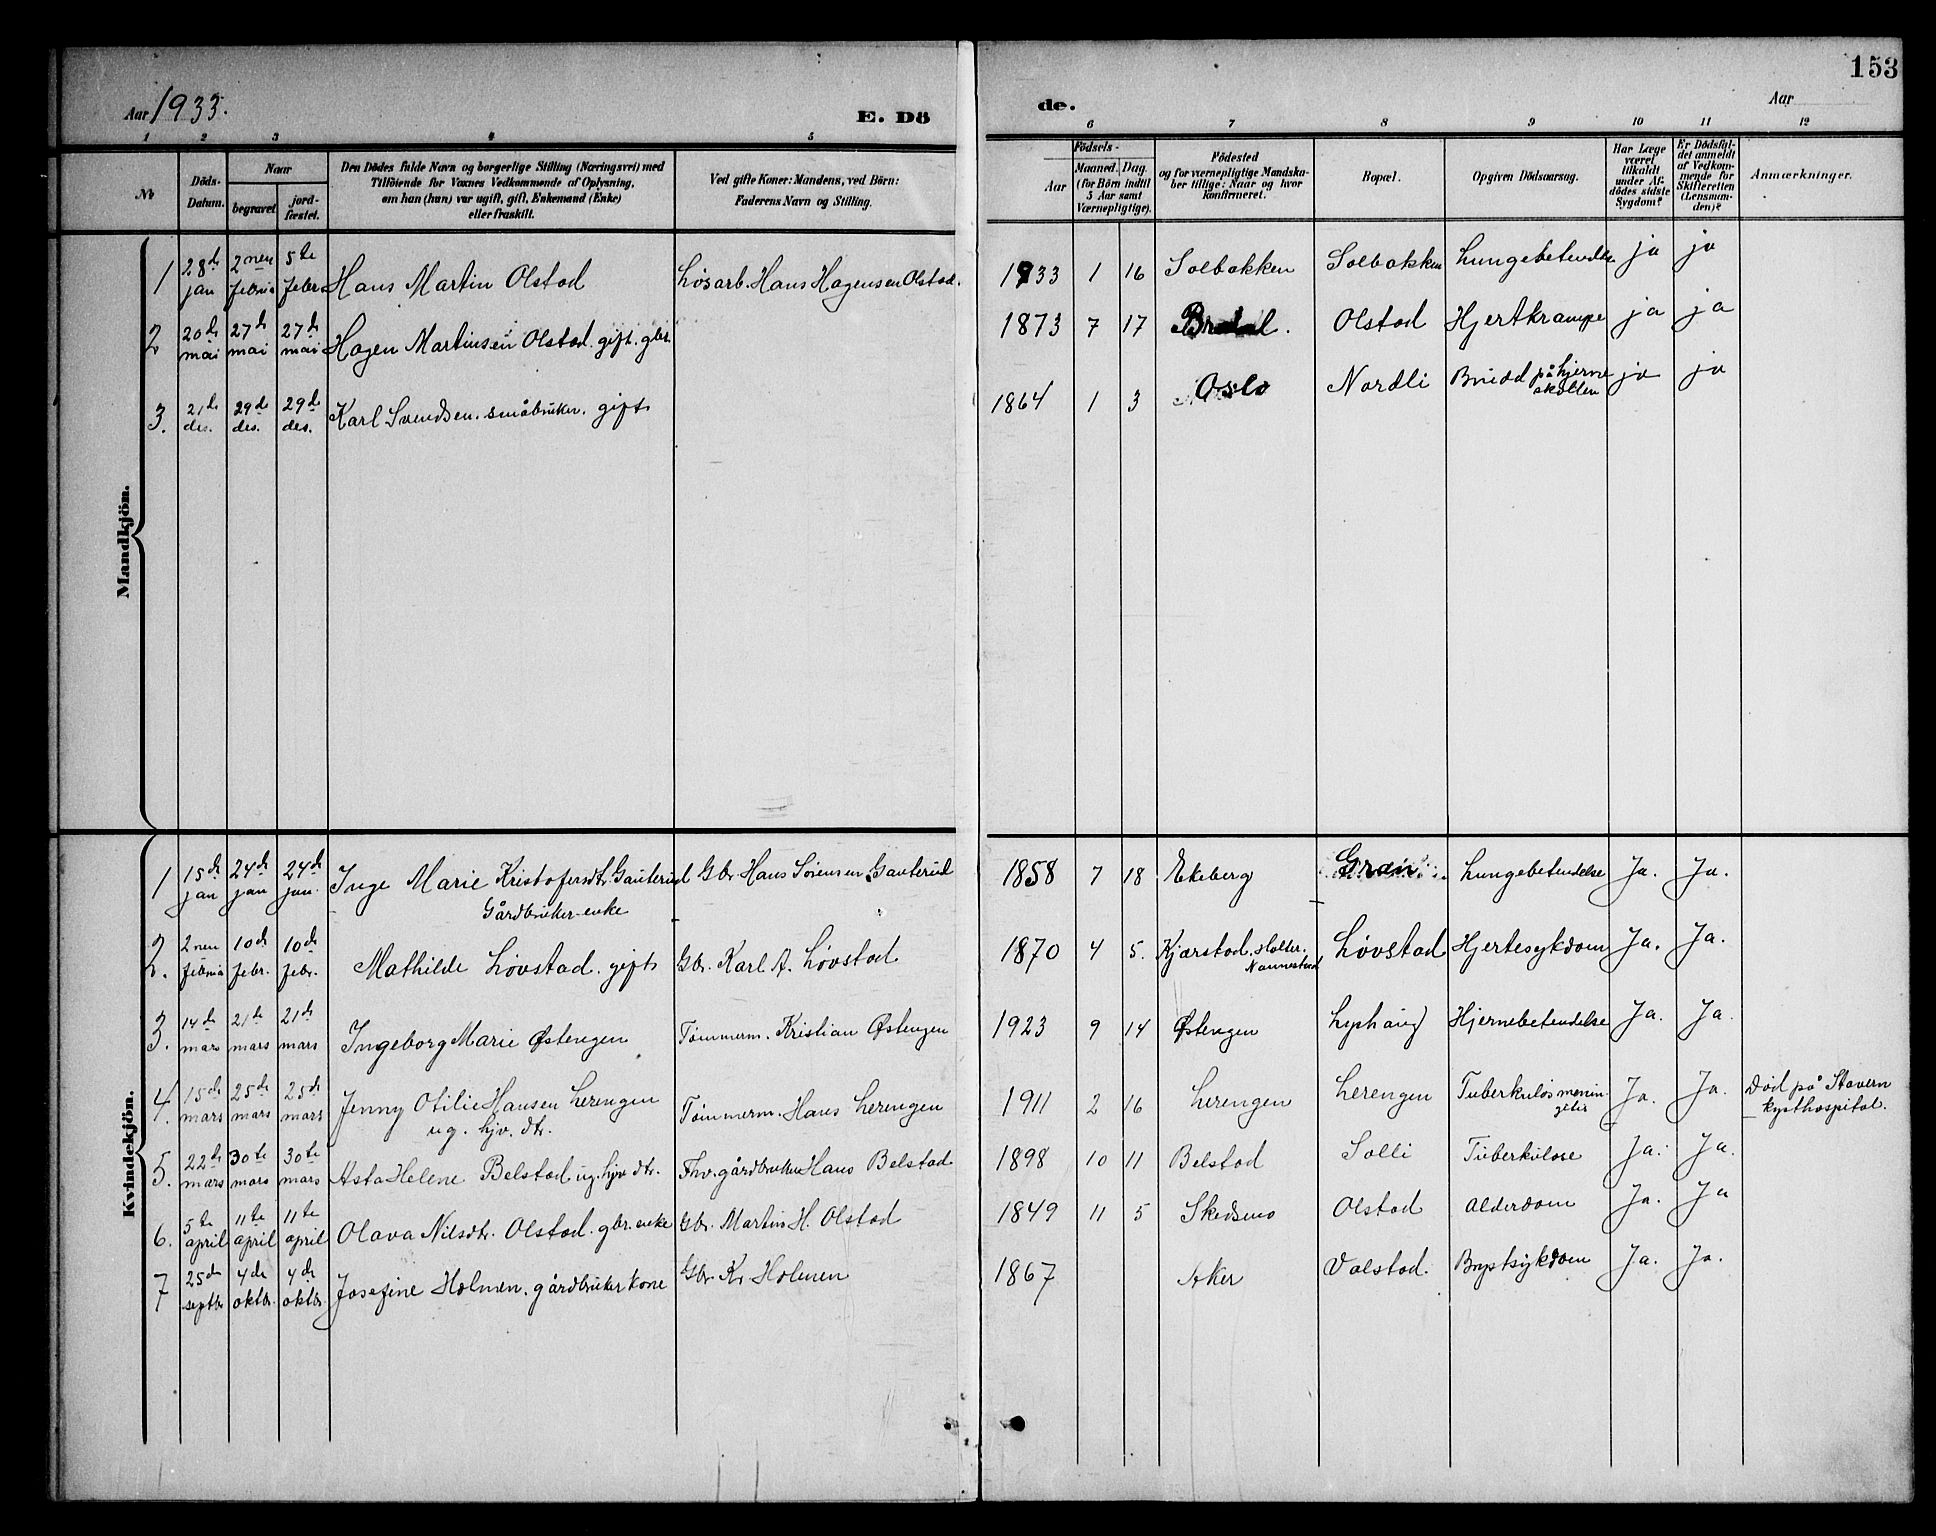 153
Aar 1933.
E. Dö
de.
Aar
1 2 3 4 5
6 7 8 9 10 11 12
No
Döds-Datum.
Naar
begravet.
jordfæstet.
Den Dödes fulde Navn og borgerlige Stilling (Næringsvei) med
Tilföiende for Voxnes Vedkommende af Oplysning,
om han (hun) var ugift, gift, Enkemand (Enke)
eller fraskilt.
Ved gifte Koner: Mandens, ved Börn:
Faderens Navn og Stilling.
Födsels-
Aar
Maaned. Dag.
(for Börn indtil
5 Aar samt
Værnepligtige).
Födested
og for værnepligtige Mandska-
ber tillige: Naar og hvor
konfirmeret.
Bopæl.
Opgiven Dödsaarsag.
Har Læge
været
tilkaldt
under Af-
dödes sidste
Sygdom?
Er Dödsfal-
det anmeldt
af Vedkom-
mende for
Skifteretten
(Lensman-
den)?
Anmærkninger.
Mandkjön.
1 28de jan 2nen februa 5te febr Hans Martin Olstad Løsarb. Hans Hagensen Olstad. 1933 1 16 Solbakken Solbakken Lungebetendelse ja ja
2 20de mai 27de mai 27de mai Hagen Martinsen Olstad. gift. gbr. 1873 7 17 Olstad Hjertkrampe ja ja
3. 21de des. 29de des. 29de des. Karl Svendsen. småbruker. gift 1864 1 3 Oslo Nordli Brudd på hjerne
skallen ja ja
Kvindekjön.
1 15de jan 24de jan 24de jan. Inge Marie Kristofersdtr. Gauterud Gbr Hans Sørensen Gauterud 1858 7 18 Ekeberg Gran Lungebetendelse Ja. Ja.
Gårdbruker-enke
2. 2nen februa 10de febr. 10de febr. Mathilde Løvstad. gift Gbr. Karl A. Løvstad 1870 4 5. Kjærstad. Holter.
Nannestad Løvstad Hjertesykdom Ja. Ja.
3. 14de mars 21de mars 21de mars Ingeborg Marie Østengen Tømmerm. Kristian Østengen 1923 9 14 Østengen Lyshaug Hjernebetendelse Ja. Ja.
4. 15de mars 25de mars 25de mars Jenny Otilie Hansen Lerengen Tømmerm. Hans Lerengen 1911 2 16 Lerengen Lerengen Tuberkuløs menin-
gitis Ja. Ja. Død på Stavern
kysthospital.
ug. hjv. dtr.
5. 22de mars 30te mars 30te mars Asta Helene Belstad ug. hjv dtr. Fhv. gårdbruker Hans Belstad 1898 10 11 Belstad Solli Tuberkulose Ja. Ja.
6. 5te april 11te april 11te april Olava Nilsdtr. Olstad. gbr. enke Gbr. Martin H. Olstad 1849 11 5 Skedsmo Olstad Alderdom Ja. Ja
7 25de septbr 4de oktbr. 4de oktbr. Josefine Holmen. gårdbruker kone Gbr Kr Holmen 1867 Aker Valstad. Brystsykdom Ja. Ja.